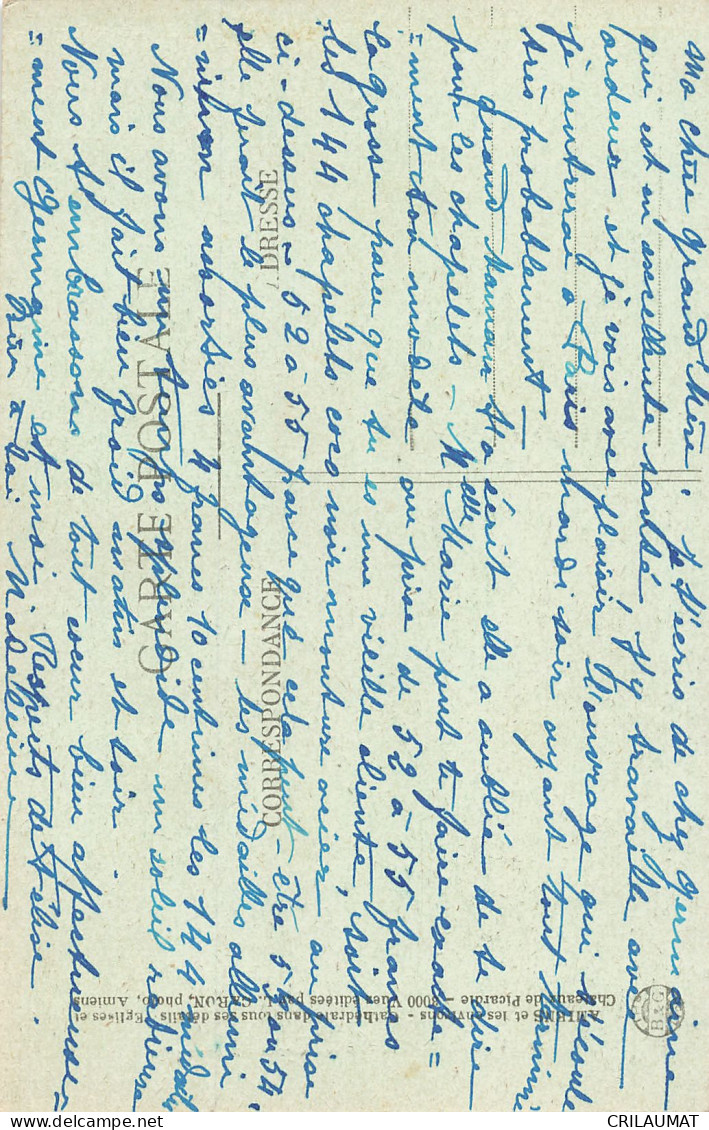 Ma chère Grand'Mère, je t'écris de chez Germaine
qui est en excellente santé, j'y travaille avec
ardeur et je vois avec plaisir l'ouvrage qui s'écoule
je rentrerai à Paris mardi soir ayant tout terminé
très probablement —
Quand Maman t'a écrit elle a oublié de te dire
pour les chapelets — Melle Marie peut te faire exacte =
= ment ton modèle au prix de 52 à 55 francs
la grosse parce que tu es une vieille cliente, soit
les 144 chapelets coco noir monture acier, au prise
ci-dessus — 52 à 55 parce que cela peut-être 53 ou 54.
elle ferait le plus avantageux — les médailles allumi
= nium assorties 4 francs 10 centimes les 144 médailles
Nous avons un temps splendide un soleil
mais il fait bien froid matin et soir.
Nous t'embrassons de tout coeur bien affectueuse =
= ment Germaine et moi Respects de Hélise.
Madeleine
CARTE POSTALE
CORRESPONDANCE
ADRESSE
AMIENS et les environs - Cathédrale dans tous ses détails - Eglises et
Châteaux de Picardie - 8000 Vues éditées par L. CARON, photo, Amiens
B&G
CRILAUMAT